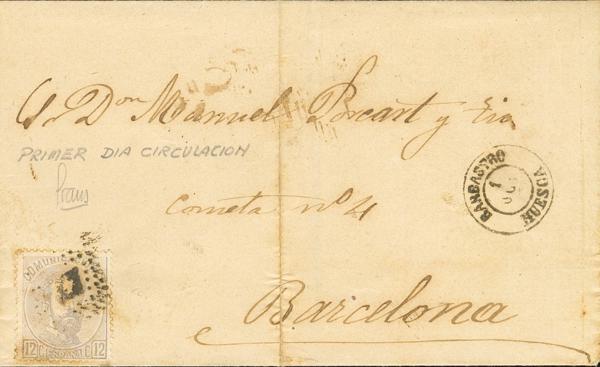 Sr Don Manuel Porcart y Cia
PRIMER DIA CIRCULACION
Graus
Cometa nº 4
BARBASTRO
1
HUESCA
Barcelona
COMUNICA
12 C. ESPAÑA C. 12